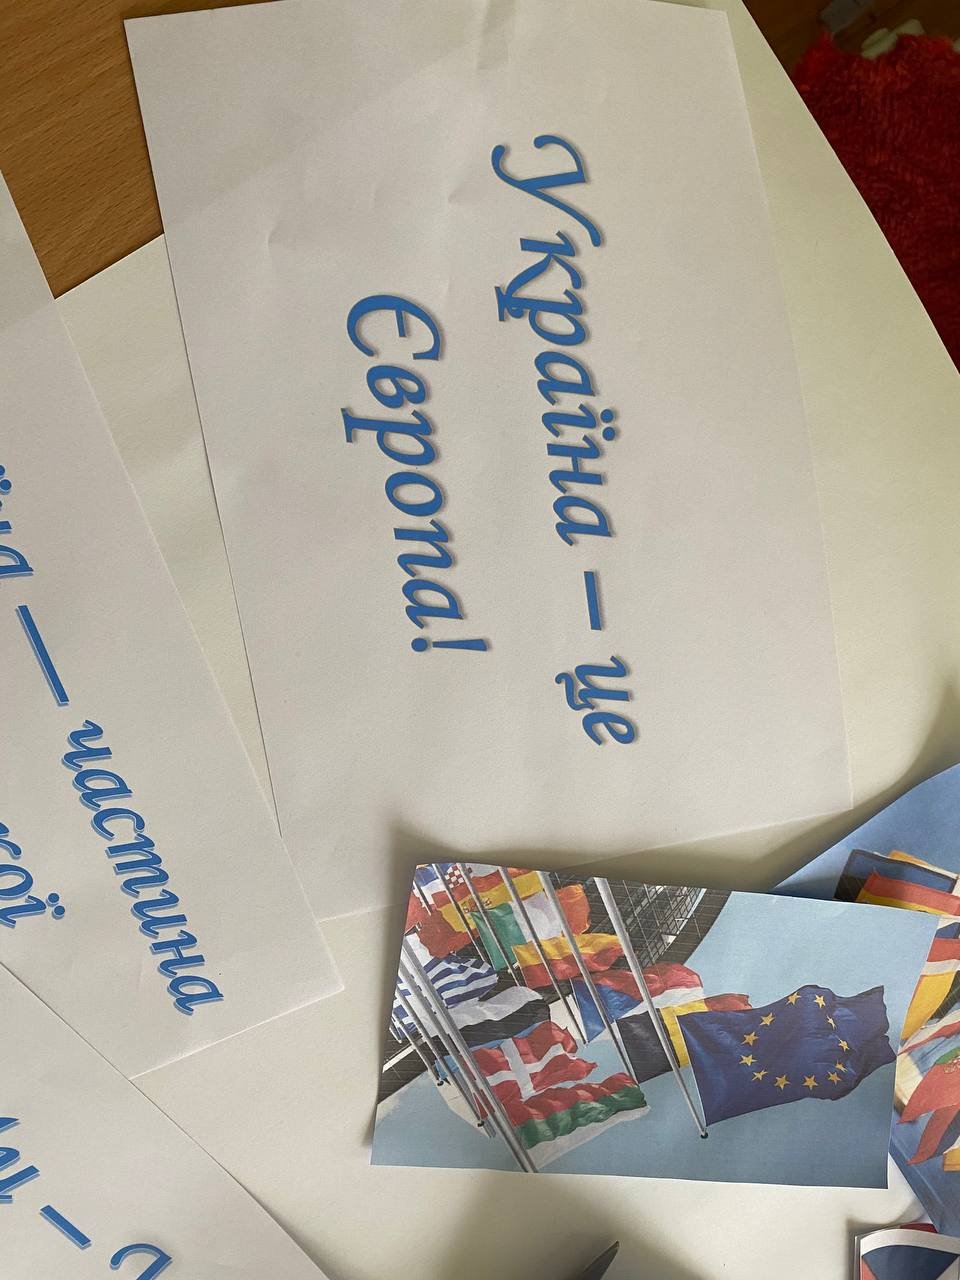 Україна – це
Європа!
— частина